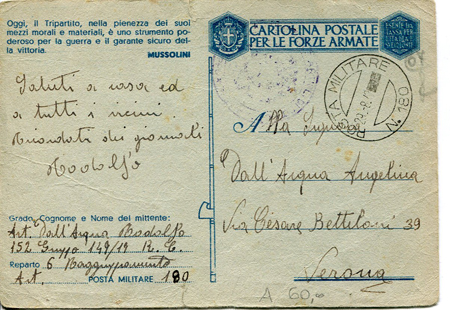 Oggi, il Tripartito, nella pienezza dei suoi
mezzi morali e materiali, è uno strumento po-
deroso per la guerra e il garante sicuro del-
la vittoria.
MUSSOLINI
Saluti a casa ed
a tutti i vicini
Ricordati dei giornali
Rodolfo
Grado, Cognome e Nome del mittente:
Art. Dall'Acqua Rodolfo
152 Gruppo 149/19 R. E.
Reparto 6 Raggruppamento
Art. POSTA MILITARE 180
CARTOLINA POSTALE
PER LE FORZE ARMATE
POSTA MILITARE
N. 180
Alla Signora
Dall'Acqua Angelina
Via Cesare Betteloni 39
Verona
A 60,=